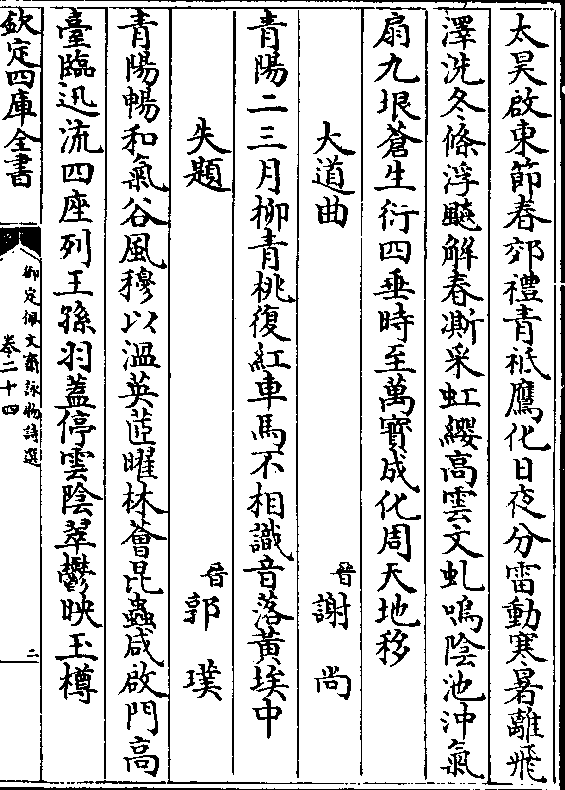 太昊啟東節春郊禮青祇鷹化日夜分雷動寒暑離飛
澤洗冬條浮飈解春凘采虹纓高雲文虬鳴陰池沖氣
扇九垠蒼生衍四垂時至萬寳成化周天地移
大道曲　晉謝尚
青陽二三月柳青桃復紅車馬不相識音落黃埃中
失題　晉郭璞
青陽暢和氣谷風穆以溫英茝曜林薈昆蟲咸啟門高
臺臨迅流四座列王孫羽蓋停雲陰翠鬱映玉樽
欽定四庫全書
御定佩文齋詠物詩選
卷二十四
二